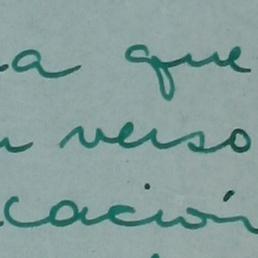 a que
verso
cación